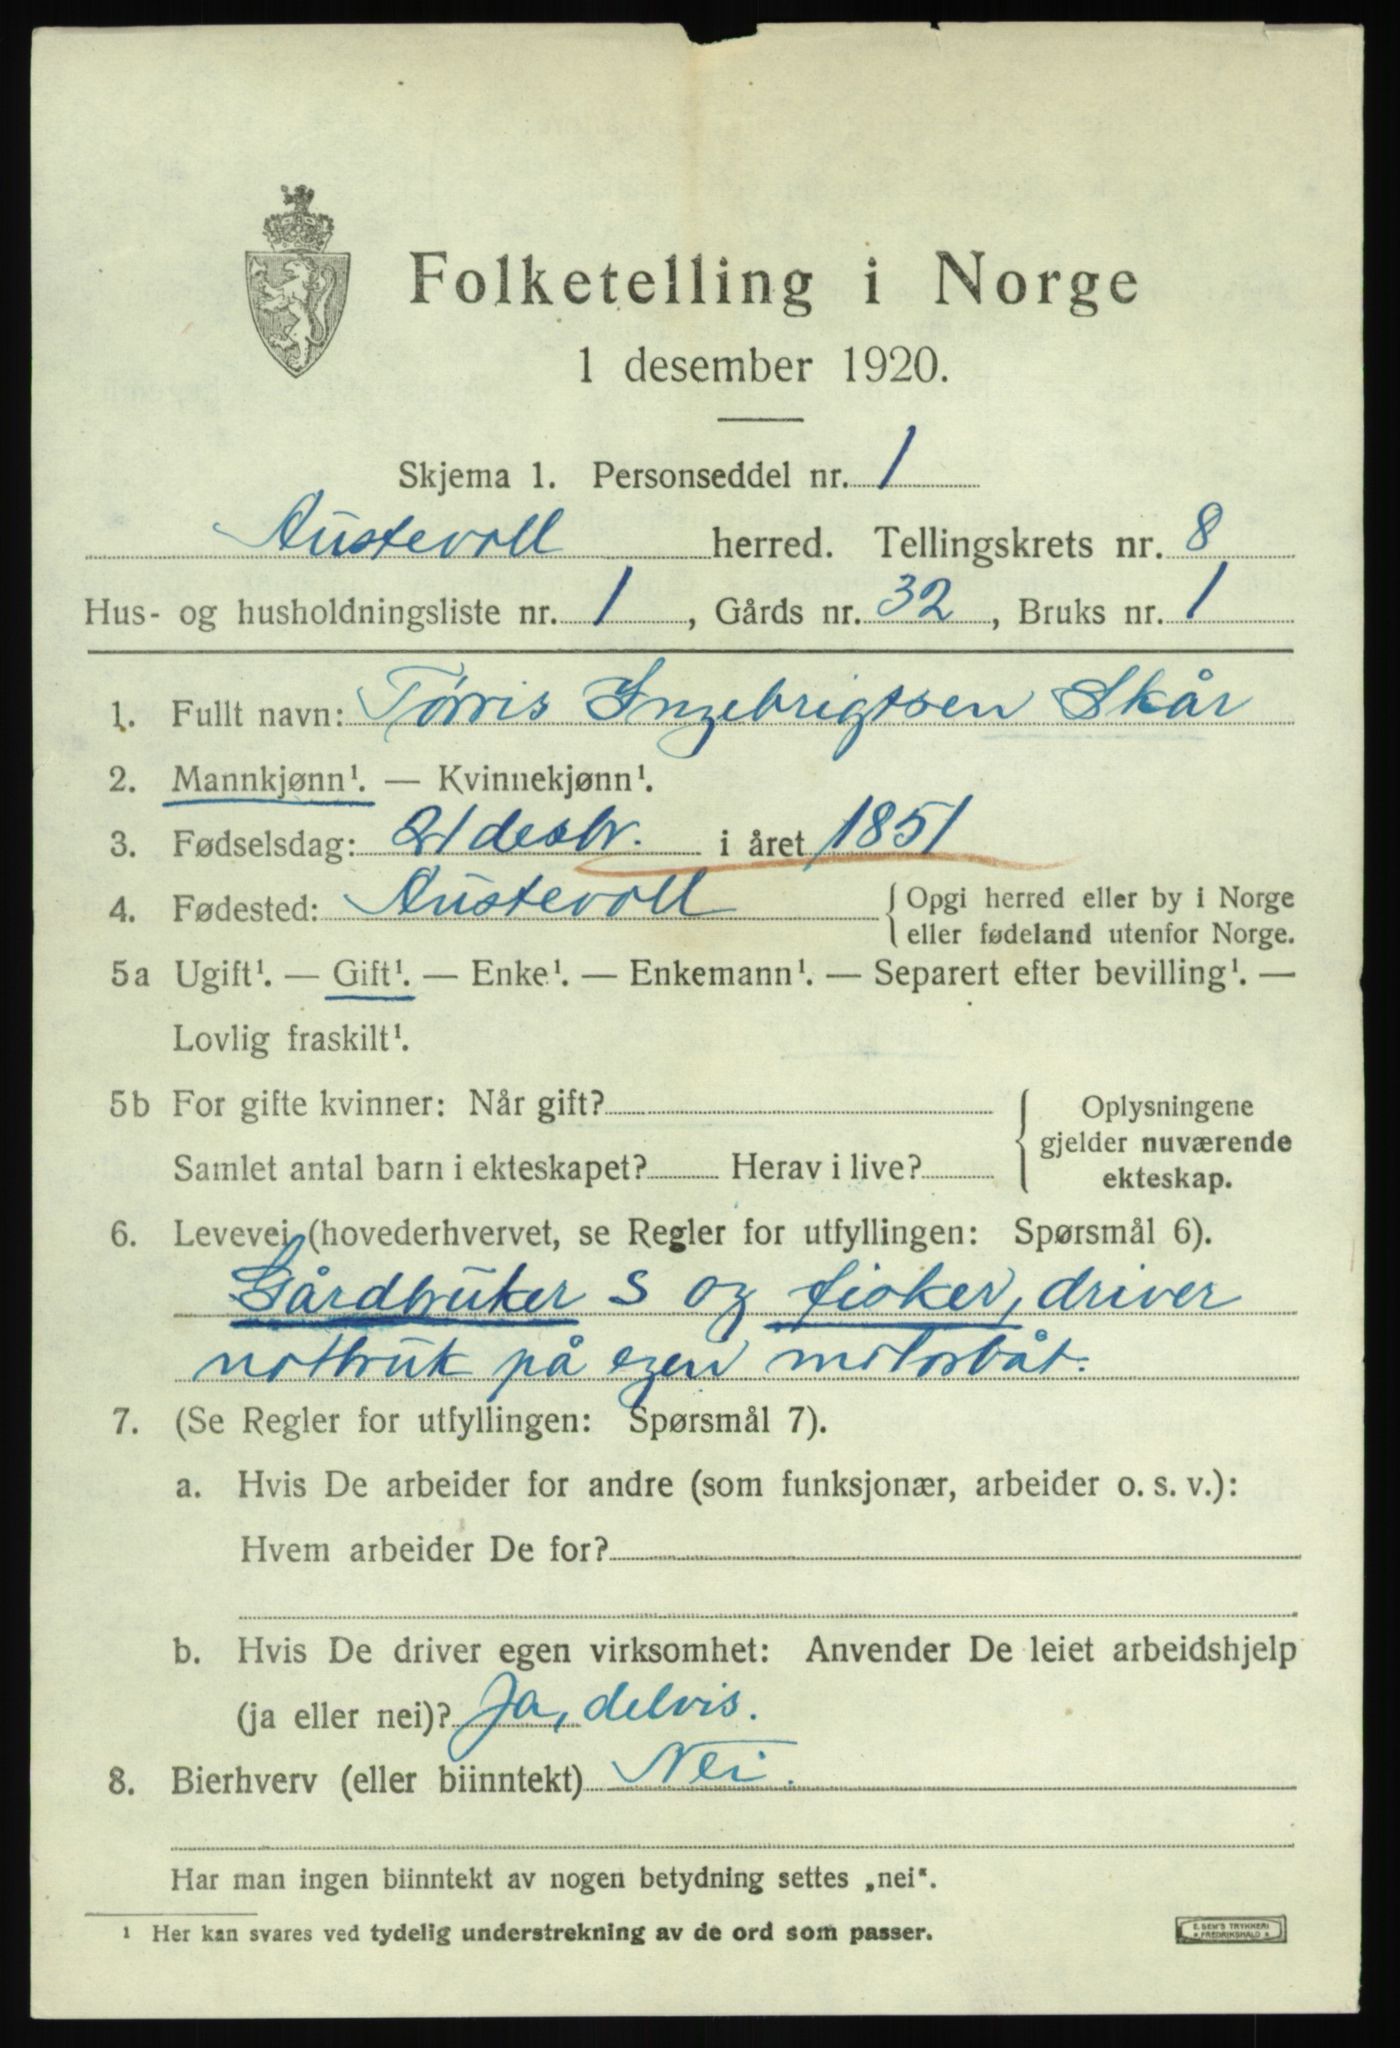 Folketelling i Norge
1 desember 1920.
Skjema 1. Personseddel nr. 1
Austevoll herred. Tellingskrets nr. 8
Hus- og husholdningsliste nr. 1, Gårds nr. 32, Bruks nr. 1
1. Fullt navn: Tørris Ingebrigtsen Skår
2. Mannkjønn¹. — Kvinnekjønn¹.
3. Fødselsdag: 21 desbr. i året 1851
4. Fødested: Austevoll { Opgi herred eller by i Norge
eller fødeland utenfor Norge.
5a Ugift¹. — Gift¹. — Enke¹. — Enkemann¹. — Separert efter bevilling¹. —
Lovlig fraskilt¹.
5b For gifte kvinner: Når gift?
Samlet antal barn i ekteskapet? Herav i live?
{ Oplysningene
gjelder nuværende
ekteskap.
6. Levevei (hovederhvervet, se Regler for utfyllingen: Spørsmål 6).
Gårdbruker S og fisker, driver
notbruk på egen motorbåt.
7. (Se Regler for utfyllingen: Spørsmål 7).
a. Hvis De arbeider for andre (som funksjonær, arbeider o. s. v.):
Hvem arbeider De for?
b. Hvis De driver egen virksomhet: Anvender De leiet arbeidshjelp
(ja eller nei)? Ja, delvis.
8. Bierhverv (eller biinntekt) Nei.
Har man ingen biinntekt av nogen betydning settes „nei“.
¹ Her kan svares ved tydelig understrekning av de ord som passer.
E. SEM'S TRYKKERI
* FREDRIKSHALD *